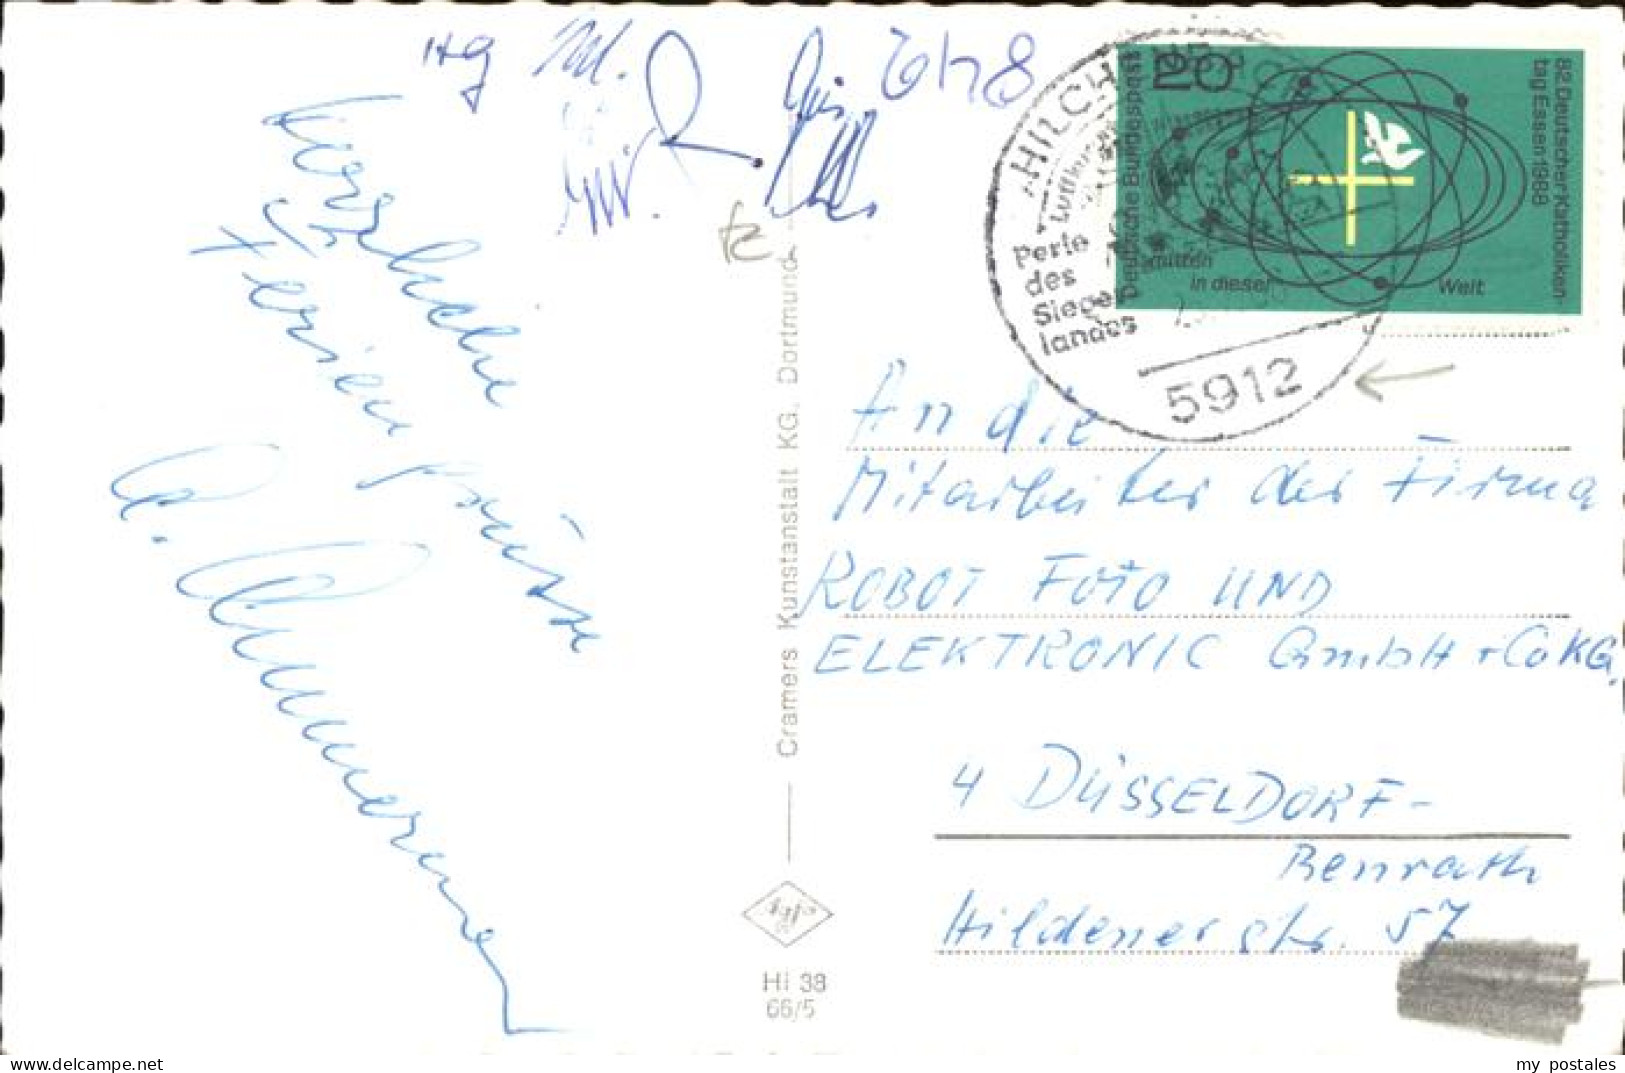 Herzliche
Feriengrüsse
HILCHENBACH
Luftkurort
Perle
des
Siege
landes
5912
20
82.Deutscher Katholiken-
tag Essen 1968
deutsche bundespost
mitten
in dieser
Welt
An die
Mitarbeiter der Firma
ROBOT FOTO UND
ELEKTRONIC GmbH + Co KG.
4 DÜSSELDORF-
Benrath
Hildener str. 57
Cramers Kunstanstalt KG. Dortmund
Agfa
Hi 38
66/5
delcampe.net
my_postales